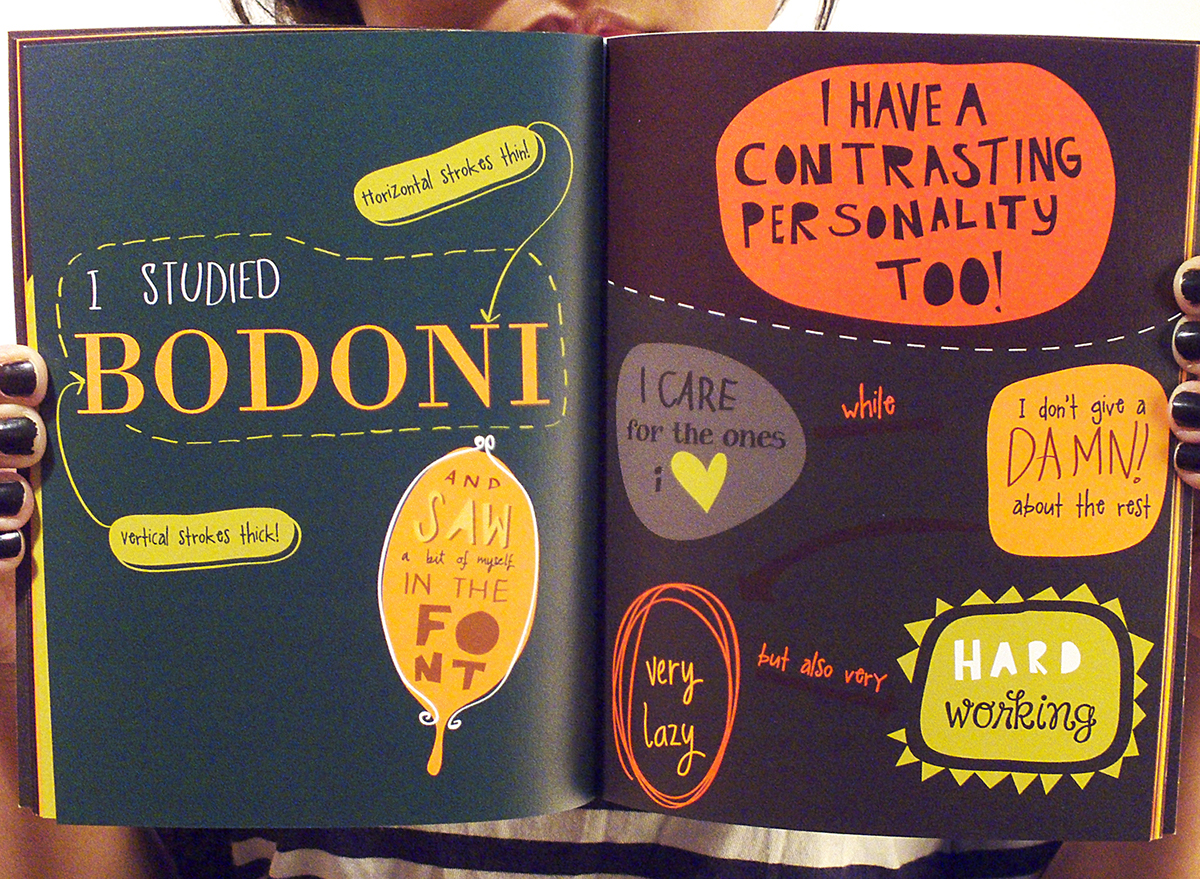 Horizontal strokes thin!
I STUDIED
BODONI
vertical strokes thick!
AND
SAW
a bit of myself
IN THE
FO
NT
I HAVE A
CONTRASTING
PERSONALITY
TOO!
I CARE
for the ones
i
while
I don't give a
DAMN!
about the rest
very
lazy
but also very
HARD
working